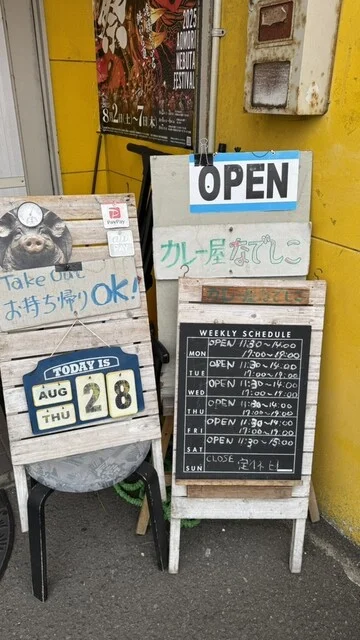 2025
AOMORI
NEBUTA
FESTIVAL
8月2日(土)~7日(木)
OPEN
PayPay
カレー屋 なでしこ
Take Out
お持ち帰り OK!
TODAY IS
AUG
THU
28
WEEKLY SCHEDULE
MON OPEN 11:30~14:00
17:00~19:00
TUE OPEN 11:30~14:00
17:00~19:00
WED OPEN 11:30~14:00
17:00~19:00
THU OPEN 11:30~14:00
17:00~19:00
FRI OPEN 11:30~14:00
17:00~19:00
SAT OPEN 11:30~15:00
SUN CLOSE
定休日